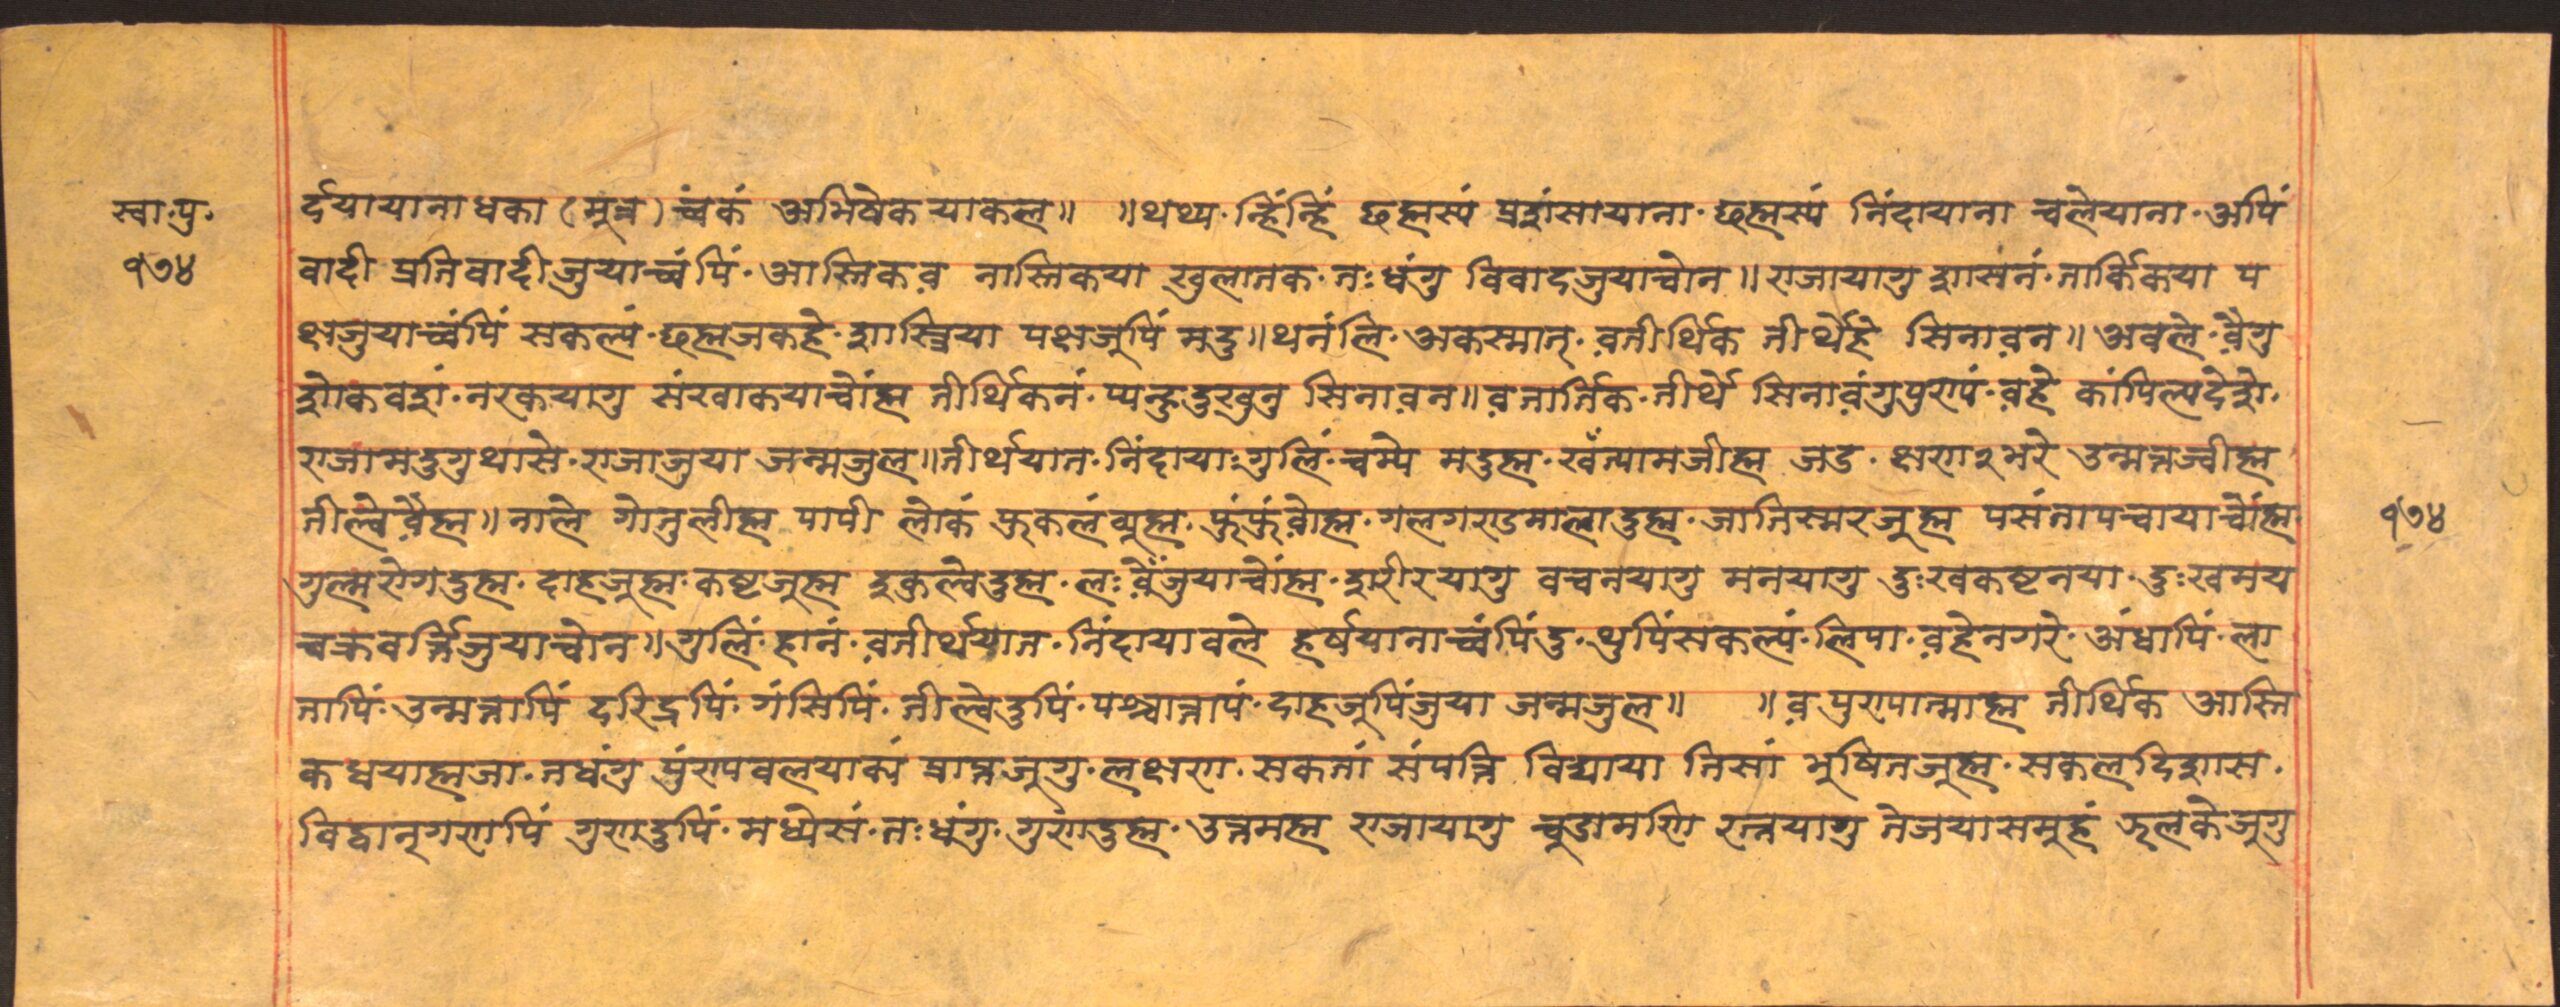 स्वा.पु.
१७४
र्दयायानाधका (मूत्र) च्वंकं अभिषेकयाकल॥ ॥थथ्य.न्हिंन्हिं छह्मस्यं प्रशंसायाना.छह्मस्यं निंदायाना च्वलेयाना.अपिं
वादी प्रतिवादीजुयाच्वंपिं.आस्तिकव़ नास्तिकया खुलातक.तःधंगु विवादजुयाच्वोन॥राजायागु शासनं.तार्किकया प
क्षजुयाच्वंपिं सकल्यं.छह्मजकहे.शास्त्रिया पक्षजूपिं मदु॥थनंलि.अकस्मात्.व़तीर्थिक तीर्थेहे सिनाव़न॥अवले.व़ैगु
शोकवशं.नरकयागु संखाकयाच्वोंह्म तीर्थिकनं.प्यन्हुदुखुनु सिनाव़न॥व़तार्तिक.तीर्थे सिनाव़ंगुपुण्यपं.व़हे कांपिल्यदेशे.
राजामदुगुथासे.राजाजुया जन्मजुल॥तीर्थयात.निंदायाःगुलिं.च्वम्ये मदुह्म.खँत्यामजीह्म जड.क्षण२भरे उन्मत्तज्वीह्म
नील्वेव़ैह्म॥नाले गोतुलीह्म पापी लोकं फ्रुकलंब्यूह्म.फ्रुंफ्रुंव़ोह्म.गलगण्डमालादुह्म.जातिस्मरजूह्म पसंतापचायाच्वोंह्म.
गुल्मरोगदुह्म.दाहजूह्म.कष्टजूह्म इकुल्वेदुह्म.लःव़ेंजुयाच्वोंह्म.शरीरयागु वचनयागु मनयागु दुःखकष्टनया.दुःखमय
चक्रवर्त्तिजुयाच्वोन॥गुलिं.हानं.व़तीर्थयात.निंदायावले हर्षयानाच्वंपिंदु.थुपिंसकल्यं.लिपा.व़हेनगरे.अंधापिं.ला
तापिं.उन्मत्तापिं दरिद्रपिं.गंसिपिं.नील्वेदुपिं.पश्चात्तापं.दाहजूपिंजुया जन्मजुल॥ ॥व़ पुण्यात्माह्म तीर्थिक आस्ति
कधयाह्मजा.तधंगु पुंण्यपवलयाक्यं प्राप्तजूगु.लक्षण.सकतां संपत्ति विद्याया तिसां भूषितजूह्म.सकलदिशास.
विद्वान्गणपिं गुणदुपिं.मध्येसं.तःधंगु.गुणंदुह्म.उत्तमह्म राजायागु चूडामणि रत्नयागु तेजयासमूहं जूलकेजूगु
१७४